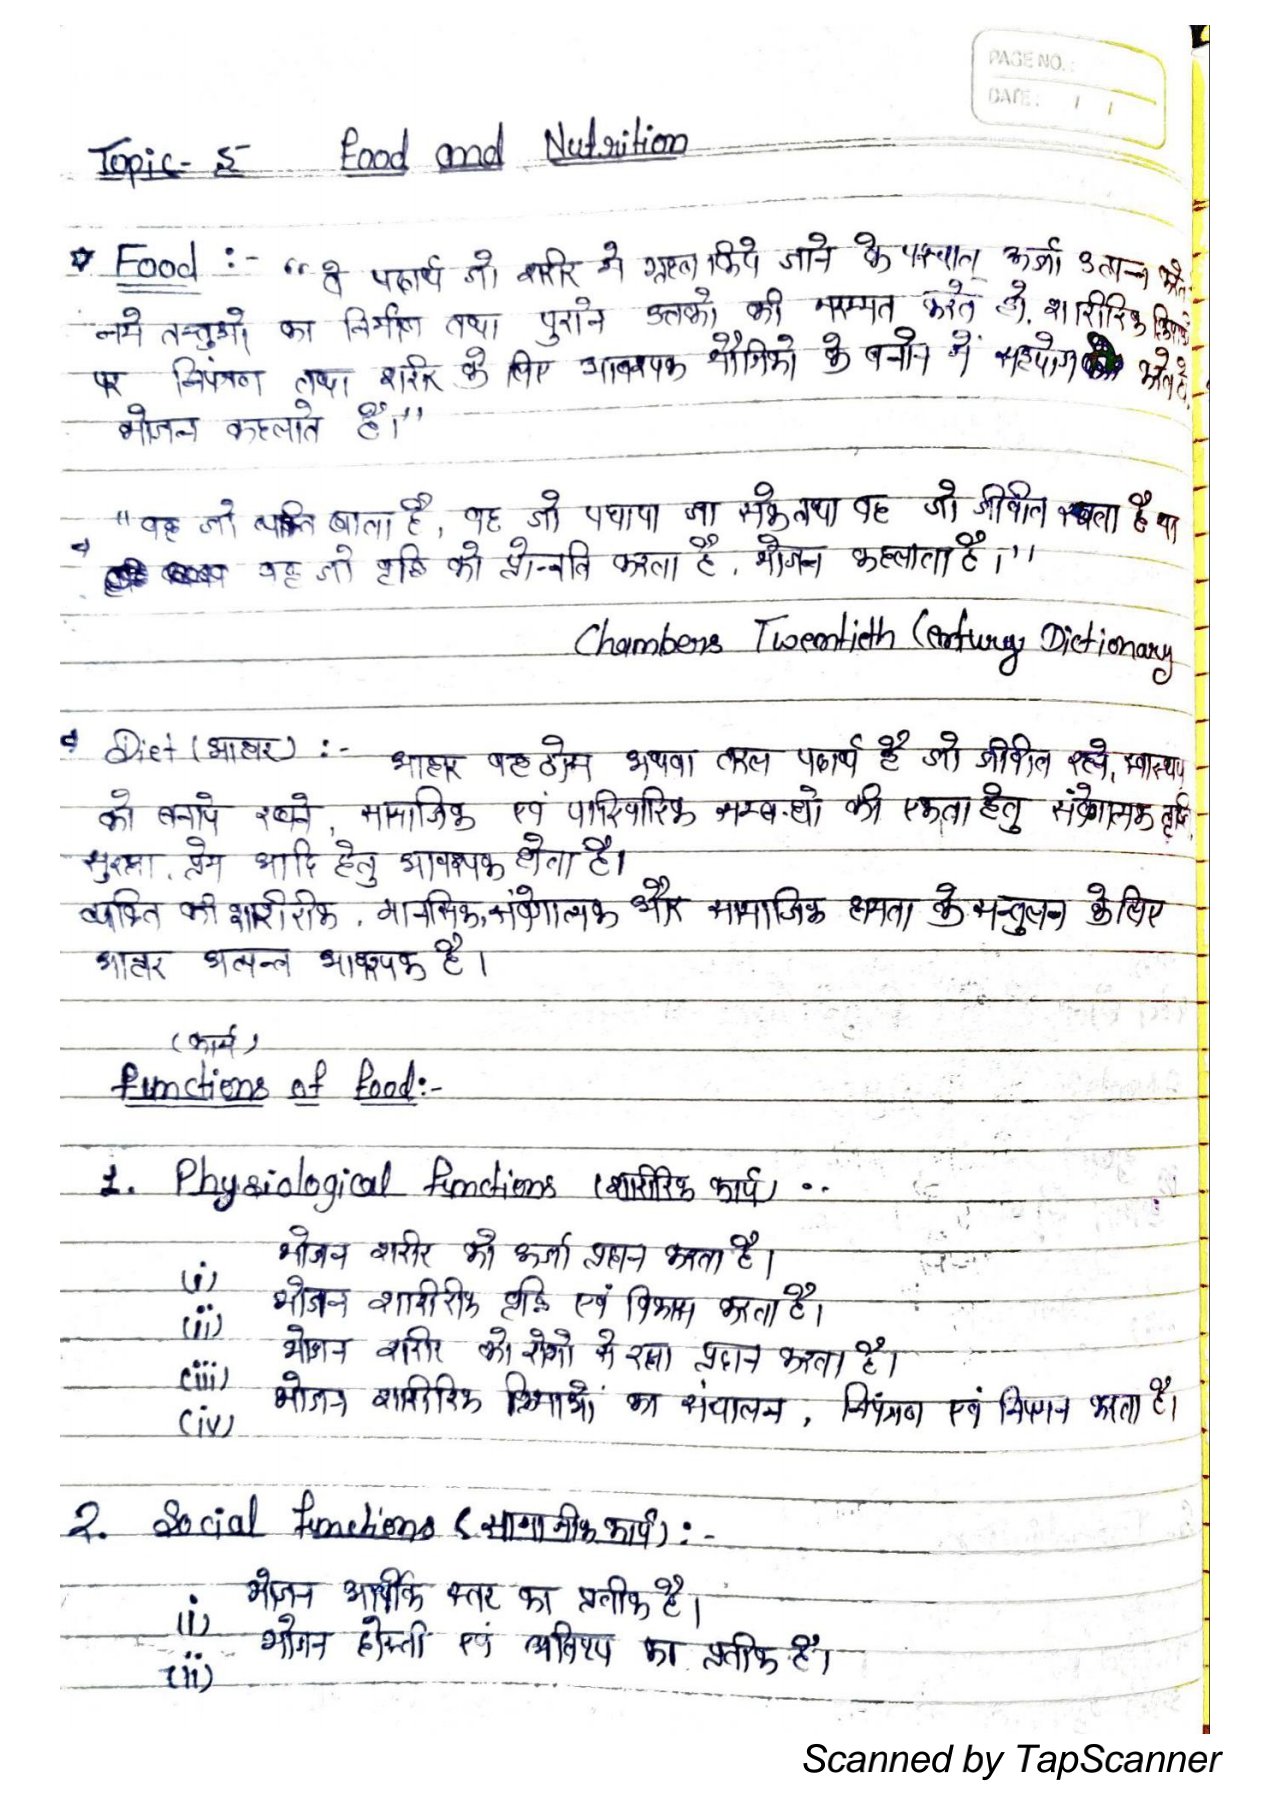 PAGE NO.:
DATE: / /
Topic- 5 Food and Nutrition
Food :- “वे पदार्थ जो शरीर मे ग्रहण किये जाने के पश्चात् ऊर्जा उत्पन्न करते
नये तन्तुओ का निर्माण तथा पुराने उतको की मरम्मत करते हो, शारीरिक क्रियाओ
पर नियंत्रण तथा शरीर के लिए आवश्यक यौगिको के बनाने में सहयोग करते हो,
भोजन कहलाते है।”
“वह जो व्यक्ति खाता है, वह जो पचाया जा सके तथा वह जो जीवित रखता है या
वह जो वृद्धि को प्रोन्नति करता है, भोजन कहलाता है।”
Chambers Twentieth Century Dictionary
Diet (आहार) :- आहार वह ठोस अथवा तरल पदार्थ है जो जीवित रहने, स्वास्थ्य
को बनाये रखने, सामाजिक एवं पारिवारिक सम्बन्धो की एकता हेतु संवेगात्मक तृप्ति,
सुरक्षा, प्रेम आदि हेतु आवश्यक होता है।
व्यक्ति की शारीरीक, मानसिक, संवेगात्मक और सामाजिक क्षमता के सन्तुलन के लिए
आहार अत्यन्त आवश्यक है।
(कार्य)
Functions of Food:-
1. Physiological Functions (शारीरिक कार्य) :-
(i) भोजन शरीर को ऊर्जा प्रदान करता है।
(ii) भोजन शारीरीक वृद्धि एवं विकास करता है।
(iii) भोजन शरीर को रोगो से रक्षा प्रदान करता है।
(iv) भोजन शारीरिक क्रियाओं का संचालन, नियंत्रण एवं नियमन करता है।
2. Social Functions (सामाजीक कार्य) :-
(i) भोजन आर्थीक स्तर का प्रतीक है।
(ii) भोजन दोस्ती एवं आतिथ्य का प्रतीक है।
Scanned by TapScanner